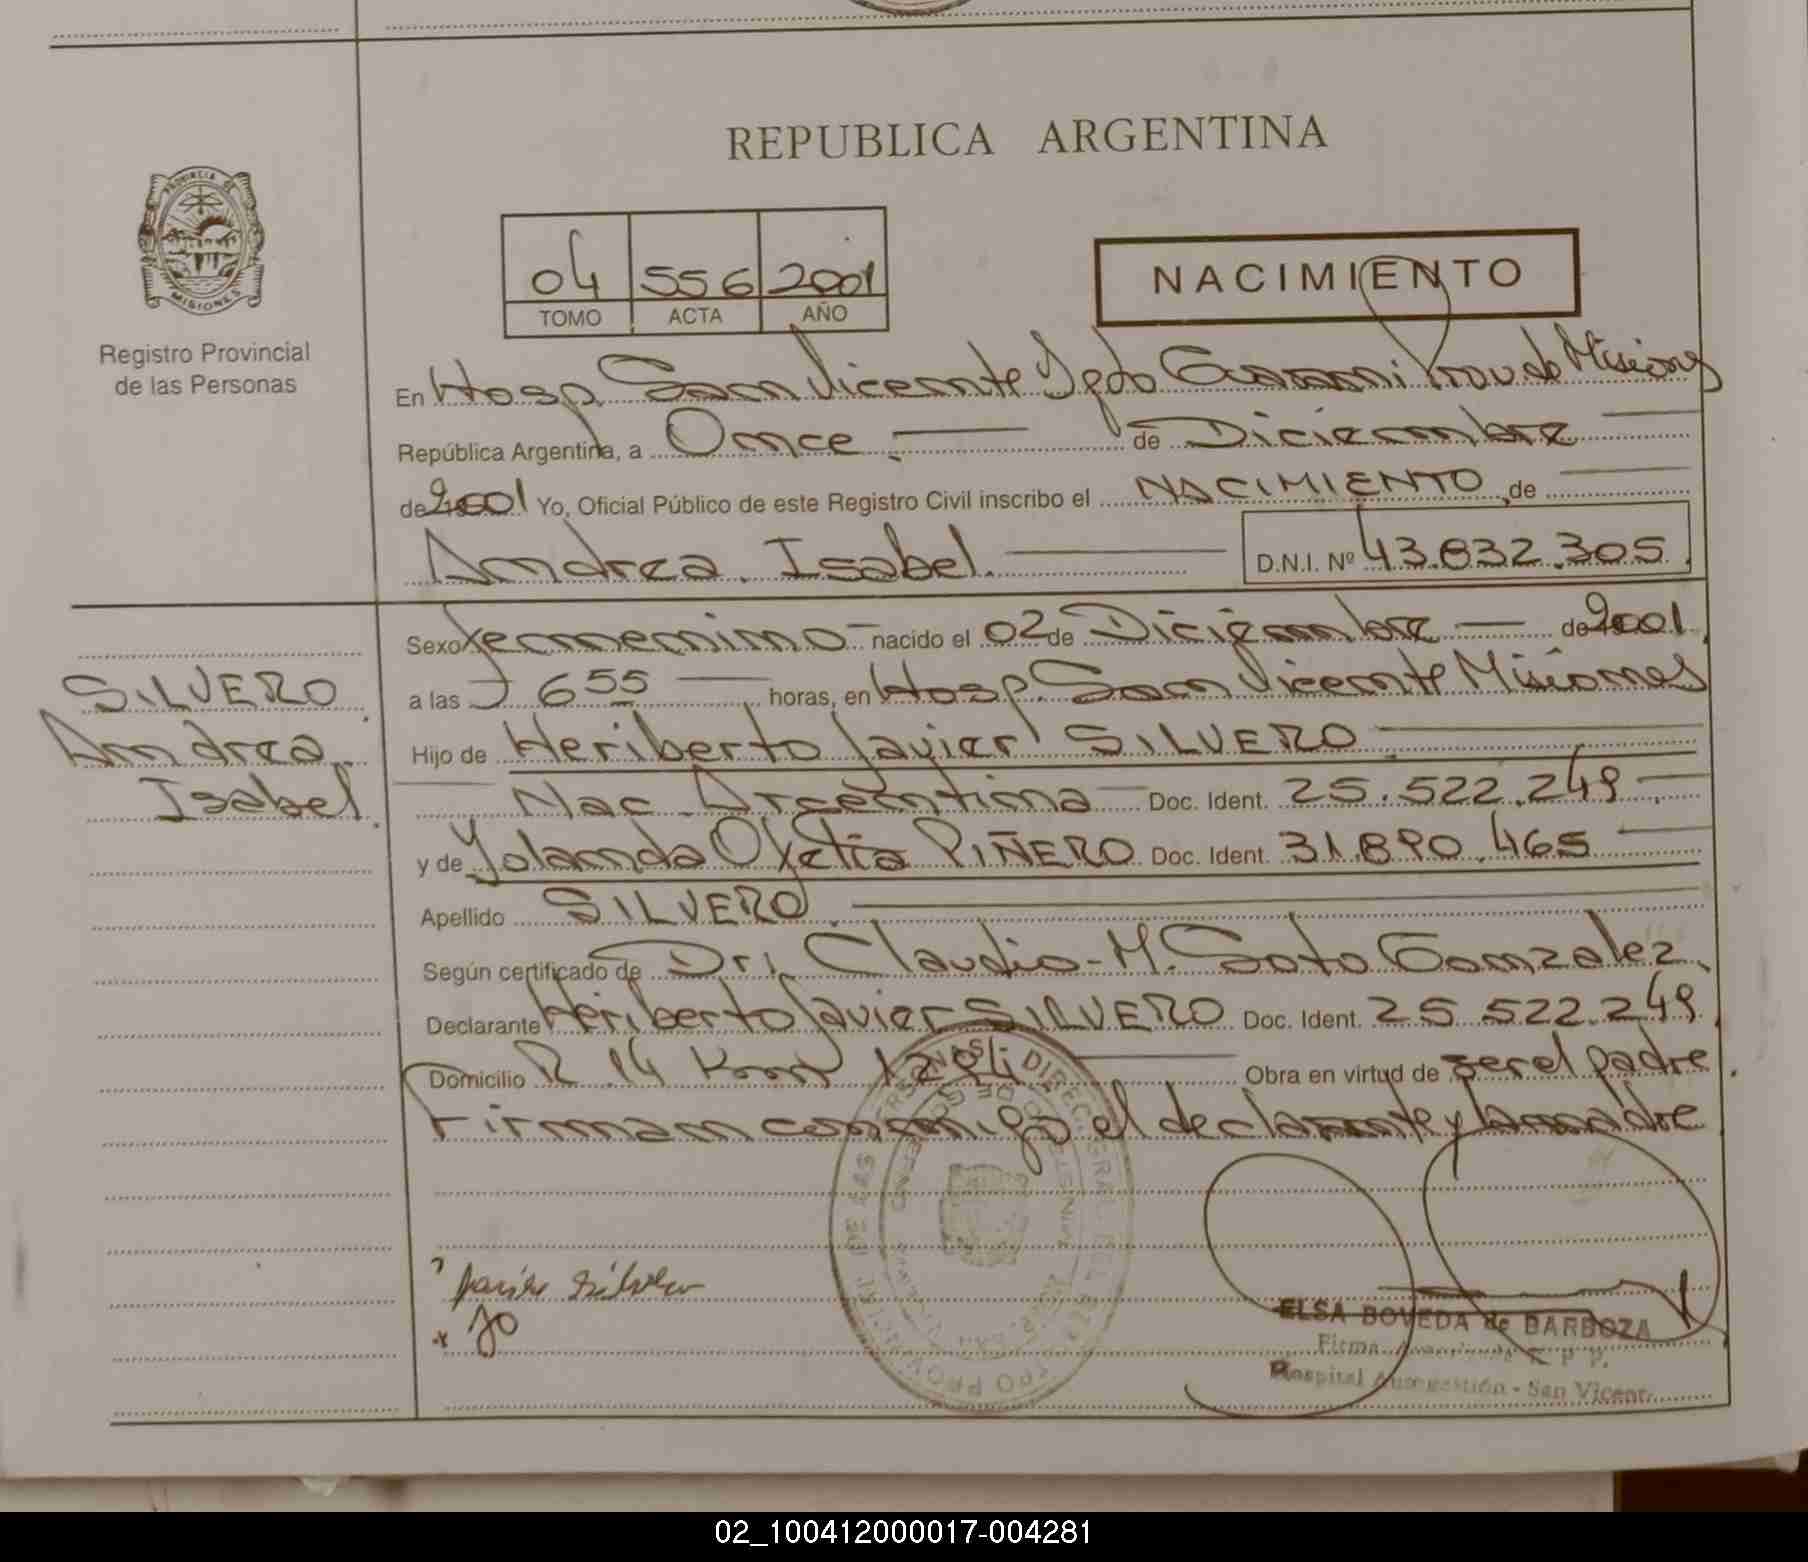 REPUBLICA ARGENTINA
PROVINCIA DE
MISIONES
Registro Provincial
de las Personas
04 556 2001
TOMO ACTA AÑO
NACIMIENTO
En Hosp. San Vicente Dpto Guarani Prov. de Misiones
República Argentina, a Once de Diciembre
de 2001 Yo, Oficial Público de este Registro Civil inscribo el NACIMIENTO, de
Andrea Isabel D.N.I. Nº 43.832.305
Sexo femenino nacido el 02 de Diciembre de 2001
a las 6 55 horas, en Hosp. San Vicente Misiones
Hijo de Heriberto Javier SILVERO
Nac. Argentina Doc. Ident. 25.522.249
y de Yolanda Ofelia PIÑERO Doc. Ident. 31.890.465
Apellido SILVERO
Según certificado de Dr. Claudio M. Soto Gonzalez
Declarante Heriberto Javier SILVERO Doc. Ident. 25.522.249
Domicilio R 14 Km 1294 Obra en virtud de ser el padre.
Firman conmigo el declarante y la madre
SILVERO
Andrea
Isabel
Javier Silvero
yo
ELSA BOVEDA de BARBOZA
Firma R. P. P.
Hospital Autogestión - San Vicente
02_100412000017-004281